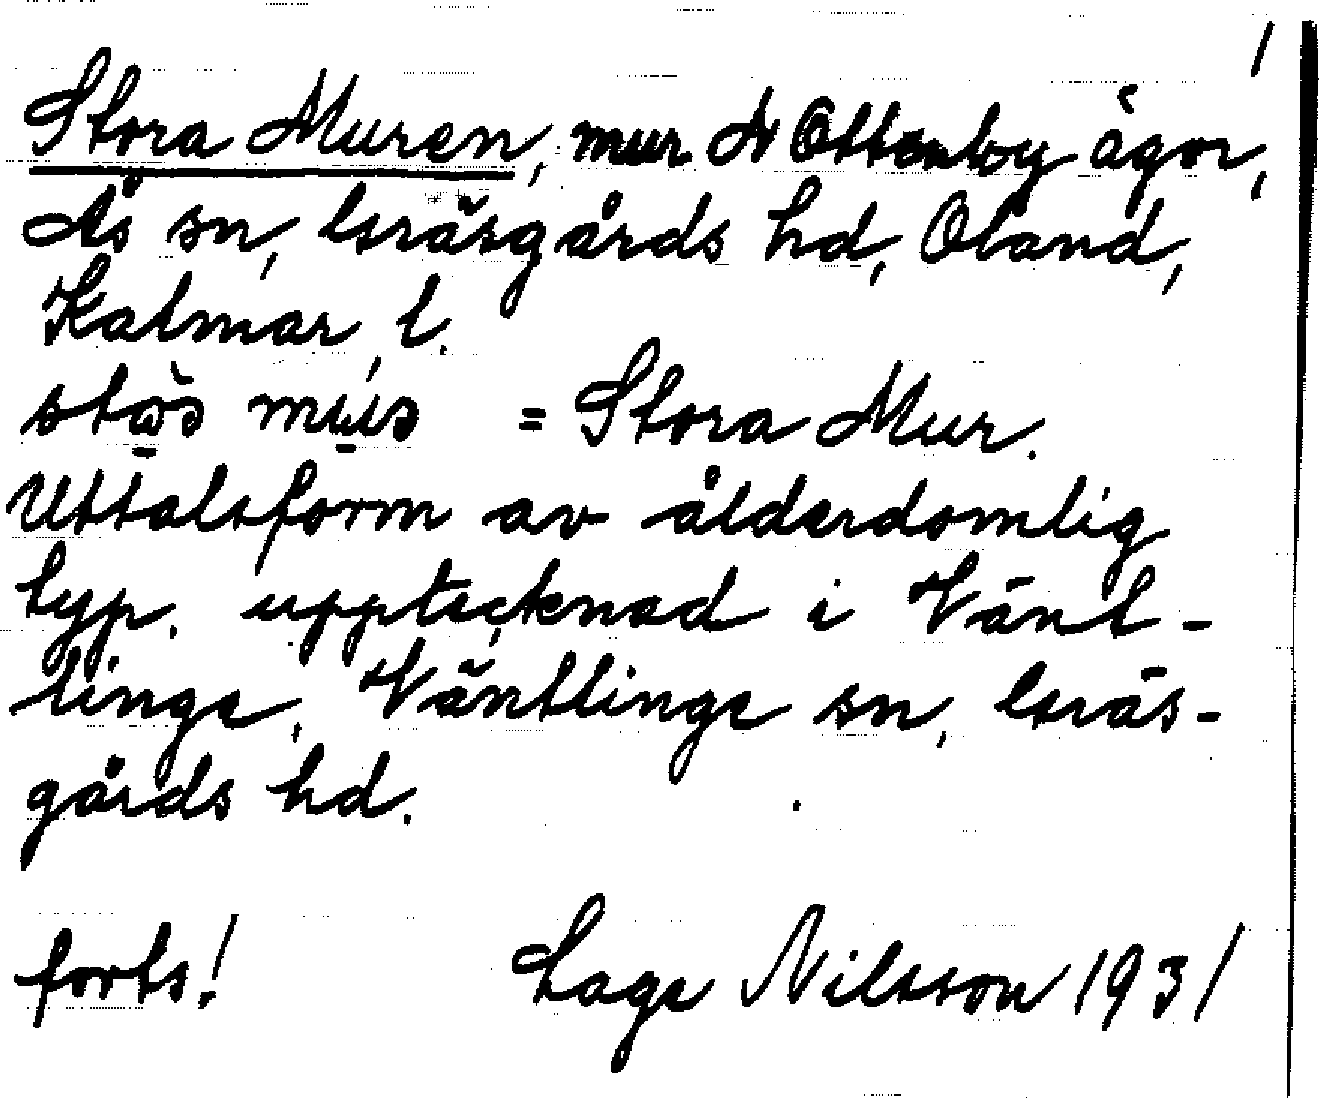 1
Stora Muren, mur N Ottenby ägor,
Ås sn, Gräsgårds hd, Öland,
Kalmar l.
= Stora Mur.
Uttalsform av ålderdomlig
typ. upptecknad i Vänt-
linge, Väntlinge sn, Gräs-
gårds hd.
forts! Lage Nilsson 1931